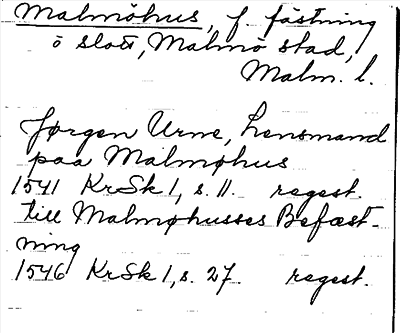 Malmöhus, f. fästning
o slott, Malmö stad,
Malm. l.
Jørgen Urne, Lensmand
paa Malmøhus
1541 KrSk 1, s. 11. regest.
till Malmøhusses Befæst-
ning
1546 KrSk 1, s. 27. regest.